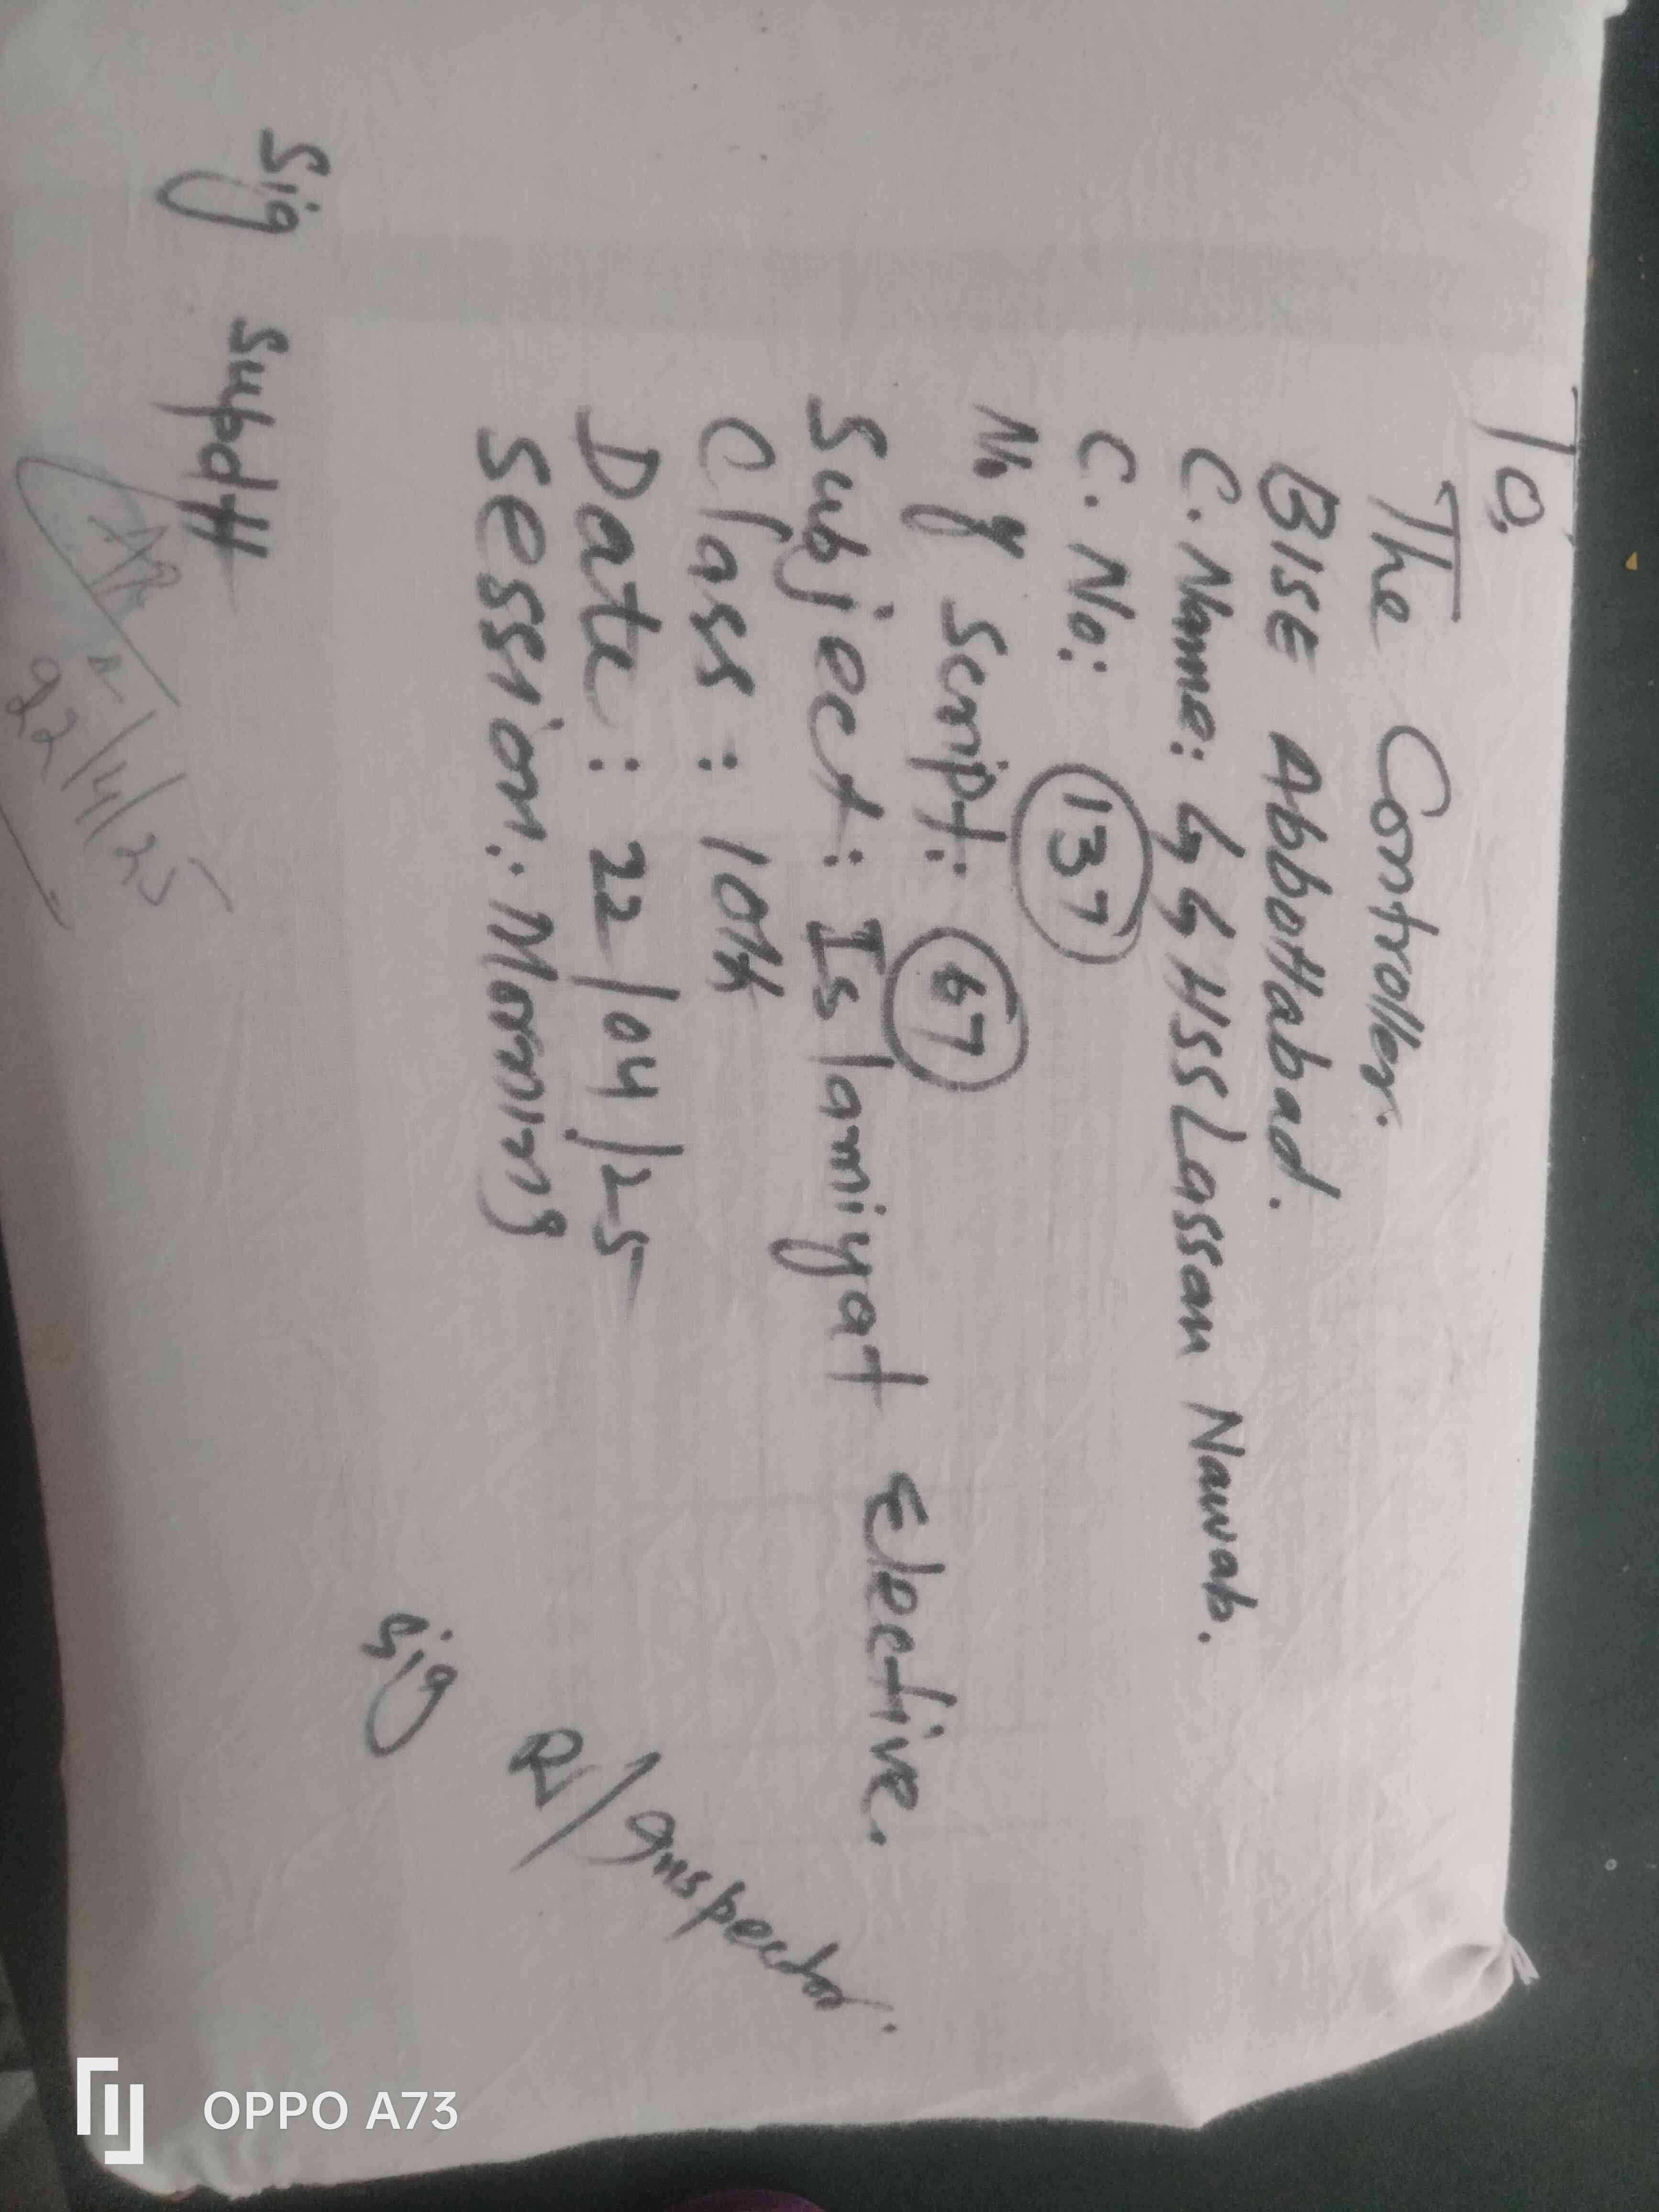 To,
The Controller.
BISE Abbottabad.
C. Name: GGHSS Lassan Nawab.
C. No: 137
No of Script: 67
Subject: Islamiyat Elective.
Class: 10th
Date: 22/04/25
Session: Morning
Sig Supdtt
22/4/25
Sig
RI/Inspector.
OPPO A73